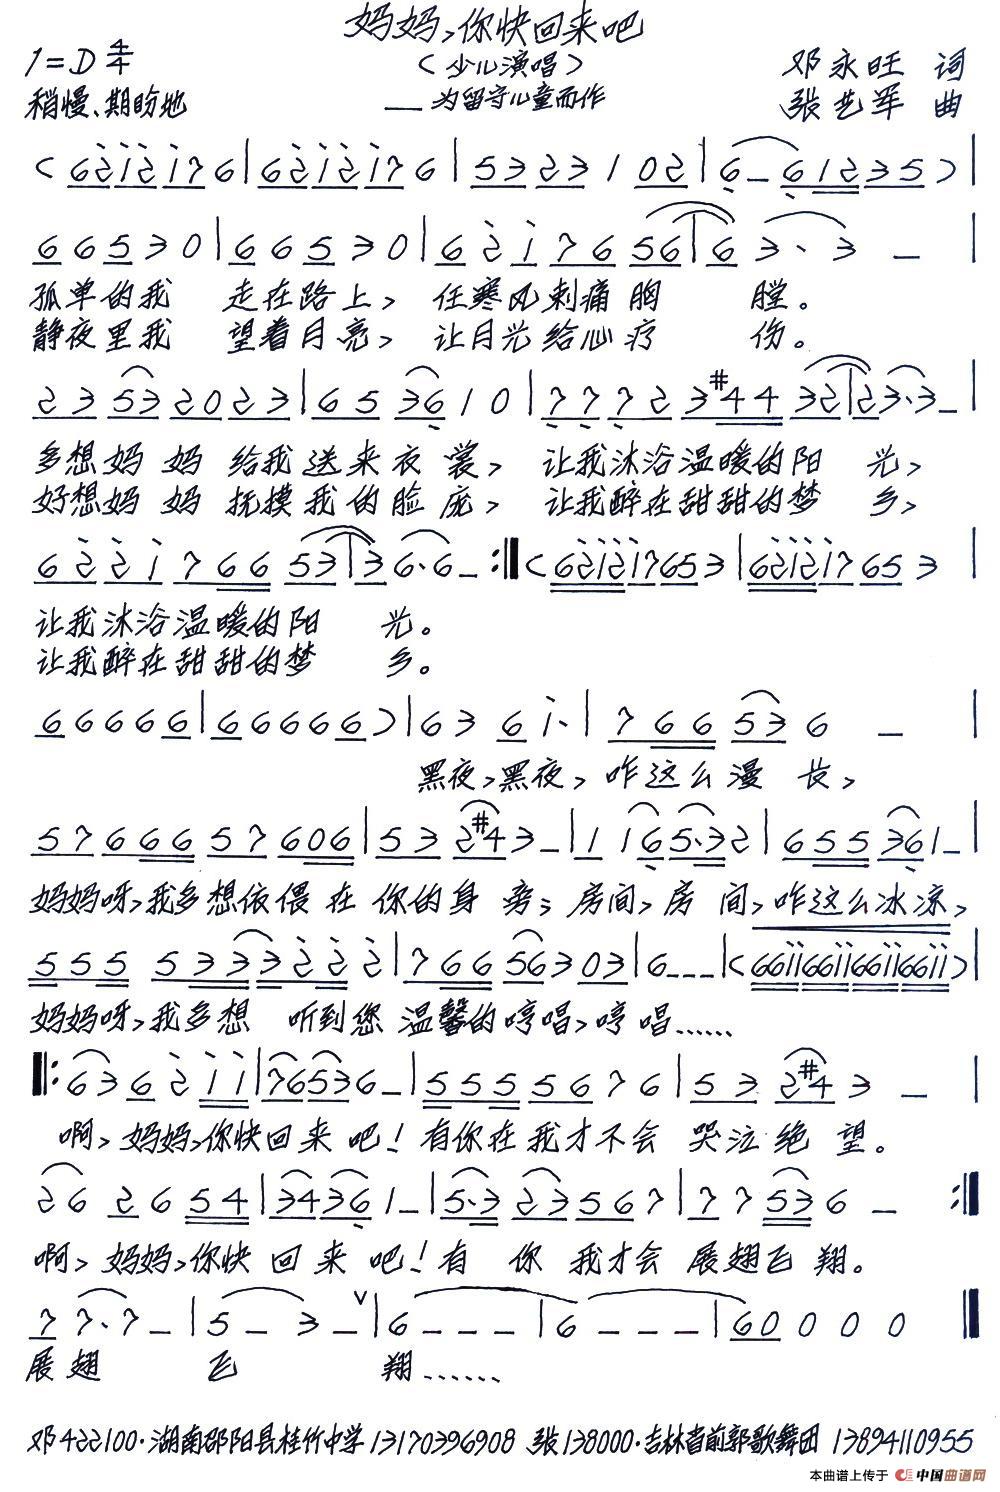 妈妈,你快回来吧
1=D 4/4 (少儿演唱) 邓永旺 词
稍慢、期盼地 __为留守儿童而作 张艺军 曲
孤单的我 走在路上, 任寒风刺痛胸 膛。
静夜里我 望着月亮, 让月光给心疗 伤。
多想妈 妈 给我送来衣裳, 让我沐浴温暖的阳 光,
好想妈 妈 抚摸我的脸庞, 让我醉在甜甜的梦 乡,
让我沐浴温暖的阳 光。
让我醉在甜甜的梦 乡。
黑夜,黑夜,咋这么漫 长,
妈妈呀,我多想依偎在你的身旁;房间,房 间,咋这么冰凉,
妈妈呀,我多想 听到您温馨的哼唱,哼唱……
啊,妈妈,你快回来吧!有你在我才不会 哭泣绝望。
啊,妈妈,你快回来吧!有 你 我才会 展翅飞翔。
展翅 飞 翔……
邓422100·湖南邵阳县桂竹中学13170396908 张138000·吉林省前郭歌舞团 13894110955
本曲谱上传于 中国曲谱网